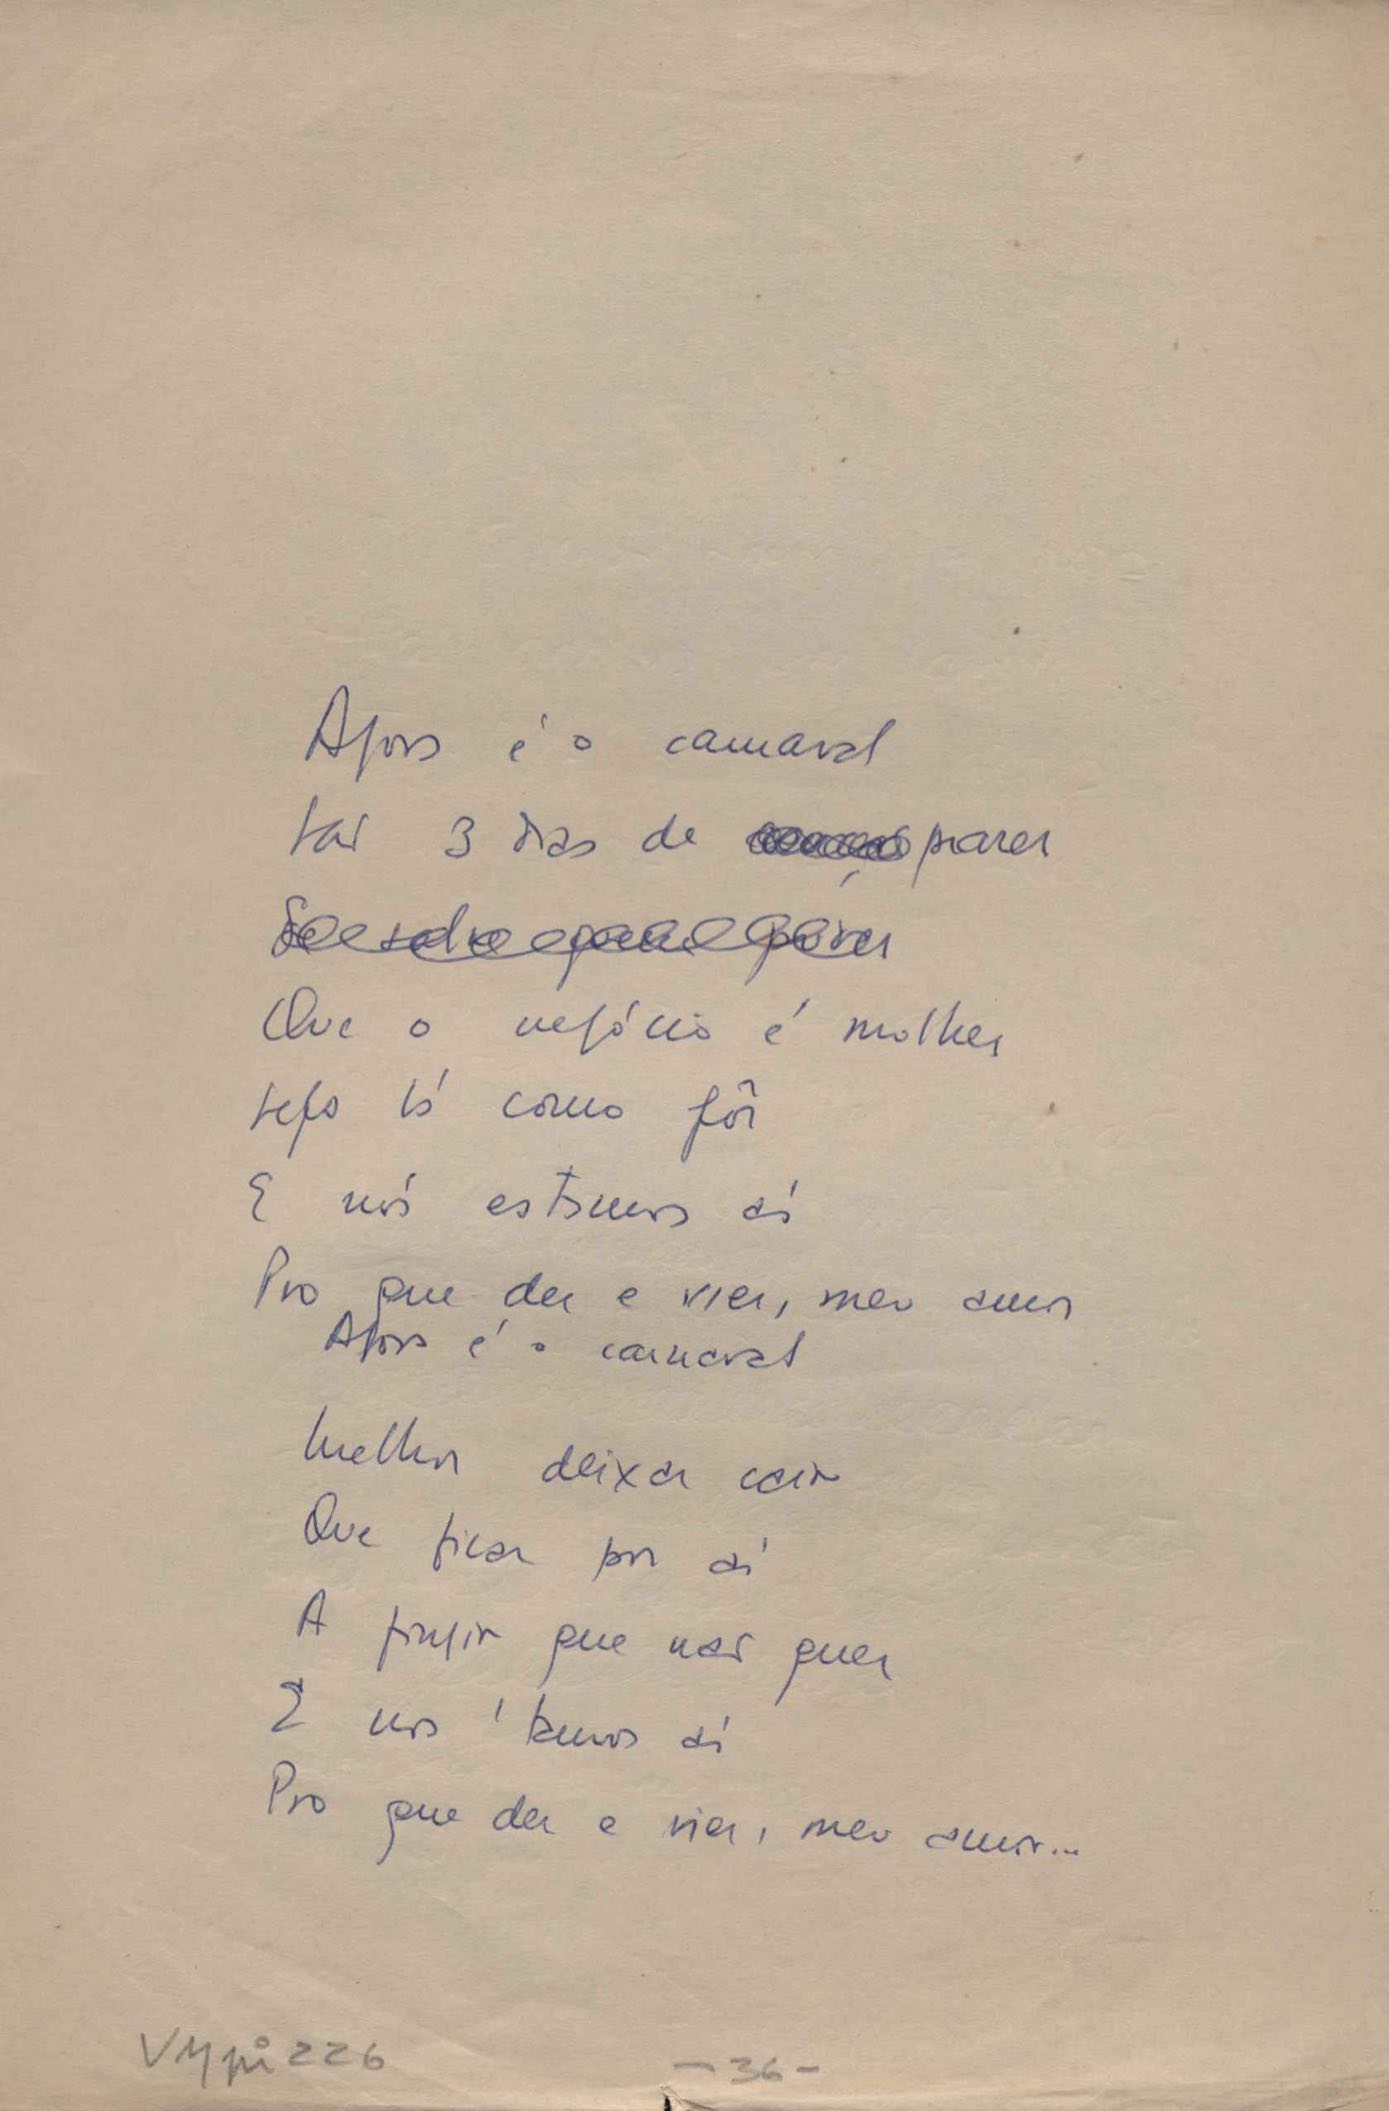 Agora é o carnaval
São 3 dias de prazer
Que o negócio é molher
Seja lá como fôr
E nós estamos aí
Pro que der e vier, meu amor
Agora é o carnaval
Melhor deixar cair
Que ficar por aí
A fingir que não quer
E nós 'tamos aí
Pro que der e vier, meu amor...
VMpi 226
- 36 -